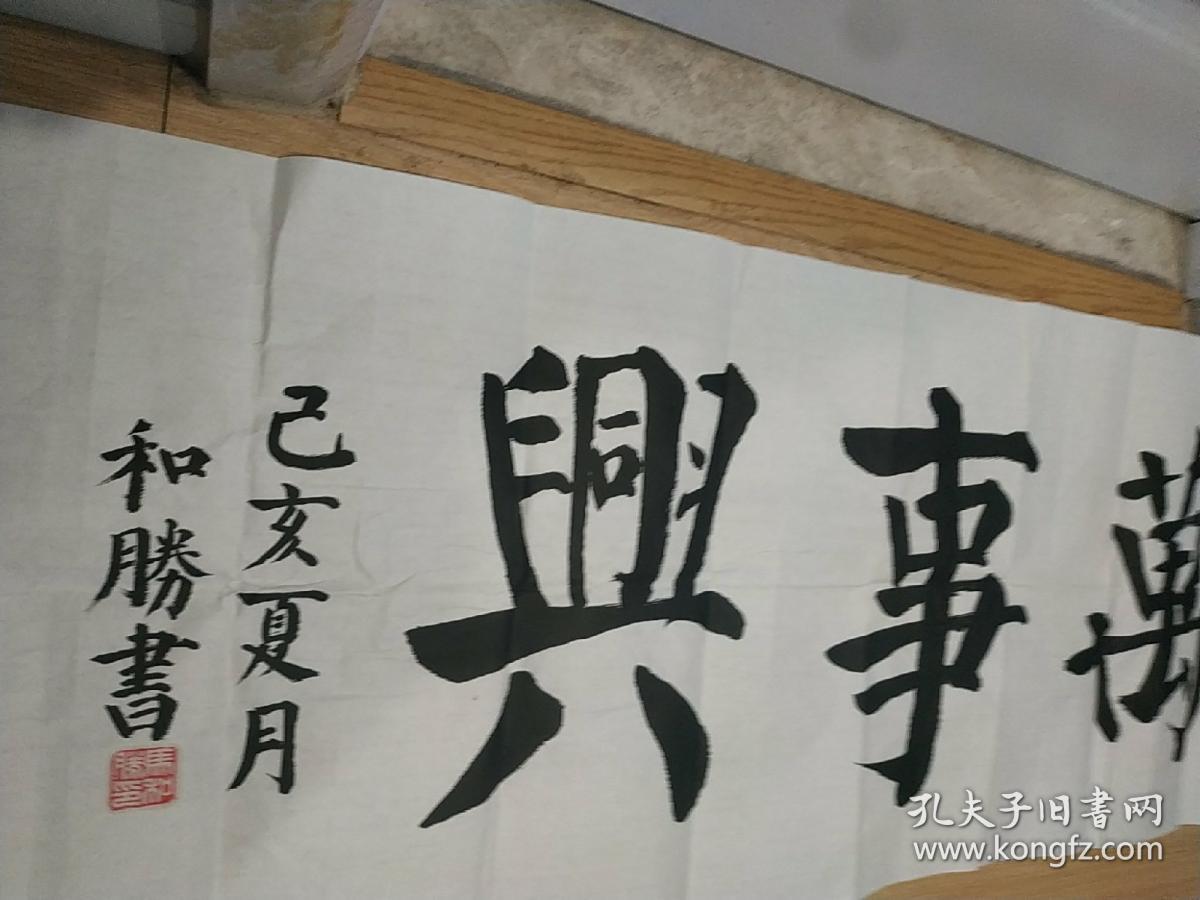 萬事興
己亥夏月
和勝書
馬和勝印
孔夫子旧书网
www.kongfz.com